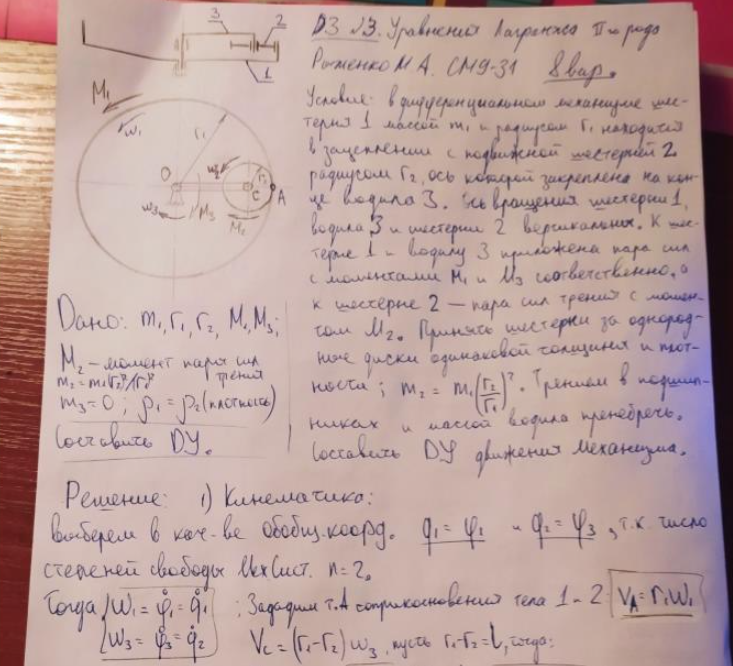 ДЗ №3. Уравнения Лагранжа II-го рода
М.А. СМ9-31 8 вар.
Условие: в дифференциальном механизме шес-
терня 1 массой m₁ и радиусом r₁ находится
в зацеплении с подвижной шестерней 2
радиусом r₂, ось которой закреплена на кон-
це водила 3. Ось вращения шестерни 1,
водила 3 и шестерни 2 вертикальны. К шес-
терне 1 и водилу 3 приложена пара сил
с моментами M₁ и M₃ соответственно, а
к шестерне 2 – пара сил трения с момен-
том M₂. Принять шестерни за однород-
ные диски одинаковой толщины и плот-
ности; m₂ = m₁(r₂/r₁)². Трением в подшип-
никах и массой водила пренебречь.
Составить ДУ движения механизма.
3
2
1
M₁
ω₁
r₁
O
ω₂
r₂
C
A
ω₃
M₃
M₂
Дано: m₁, r₁, r₂, M₁, M₃;
M₂ – момент пары сил
трения
m₂ = m₁(r₂)²/(r₁)²
m₃ = 0; ρ₁ = ρ₂ (плотность)
Составить ДУ.
Решение: 1) Кинематика:
выберем в кач-ве обобщ. коорд. q₁ = φ₁ и q₂ = φ₃, т.к. число
степеней свободы Мех.Сист. n = 2.
Тогда { ω₁ = φ̇₁ = q̇₁ ; Зададим т.A соприкосновения тела 1 и 2: V_A = r₁ω₁
ω₃ = φ̇₃ = q̇₂ V_C = (r₁-r₂)ω₃, пусть r₁-r₂ = L, тогда: